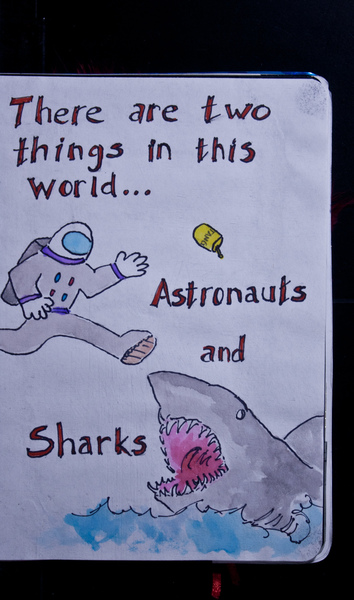 There are two
things in this
world...
Astronauts
and
Sharks